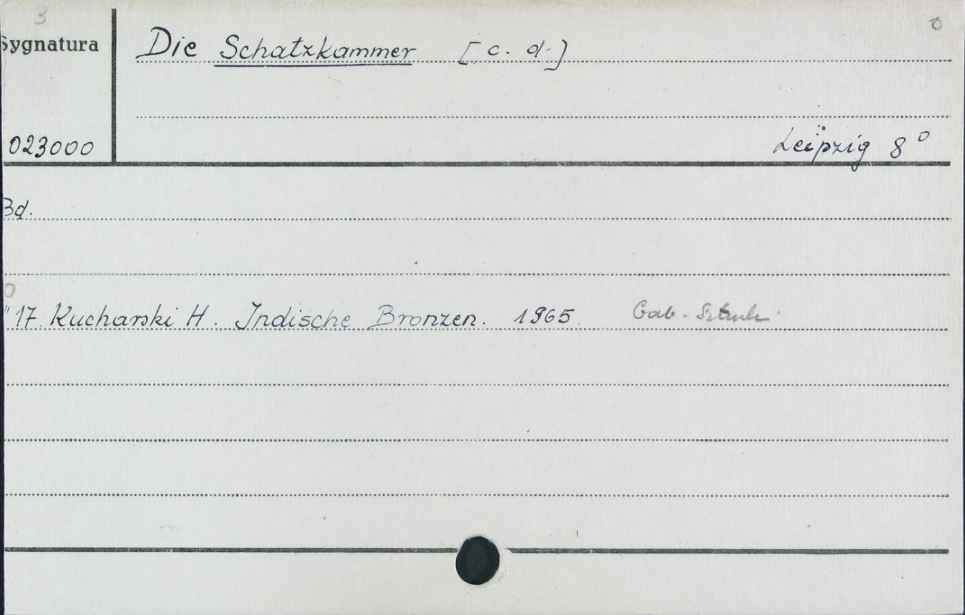 3
Sygnatura Die Schatzkammer [c. d.] 0
023000 Leipzig 8°
Bd.
0
"17 Kucharski H. Indische Bronzen. 1965. Gab.